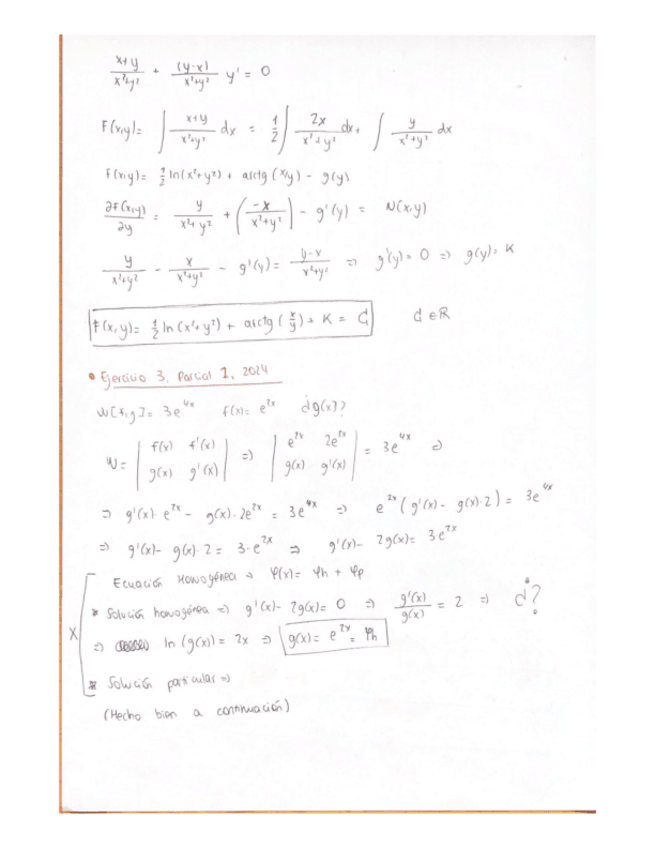 x+y/x²+y² + (y-x)/x²+y² y' = 0
F(x,y)= ∫ x+y/x²+y² dx = 1/2 ∫ 2x/x²+y² dx + ∫ y/x²+y² dx
f(x,y)= 1/2 ln(x²+y²) + arctg (x/y) - g(y)
∂F(x,y)/∂y = y/x²+y² + (-x/x²+y²) - g'(y) = N(x,y)
y/x²+y² - x/x²+y² - g'(y) = y-x/x²+y² => g'(y)= 0 => g(y)= K
F(x,y)= 1/2 ln (x²+y²) + arctg (x/y) + K = C C ∈ ℝ
• Ejercicio 3, Parcial 1, 2024
W[f,g]= 3e^4x f(x)= e^2x ¿g(x)?
W= | f(x) f'(x) | => | e^2x 2e^2x | = 3e^4x =>
| g(x) g'(x) | | g(x) g'(x) |
=> g'(x)· e^2x - g(x)· 2e^2x = 3e^4x => e^2x (g'(x)- g(x)·2) = 3e^4x
=> g'(x)- g(x)· 2 = 3· e^2x => g'(x)- 2g(x)= 3e^2x
Ecuación Homogénea → φ(x)= φh + φp
* Solución homogénea => g'(x)- 2g(x)= 0 => g'(x)/g(x) = 2 => ¿?
X => ln (g(x)) = 2x => g(x)= e^2x = φh
* Solución particular =>
(Hecho bien a continuación)